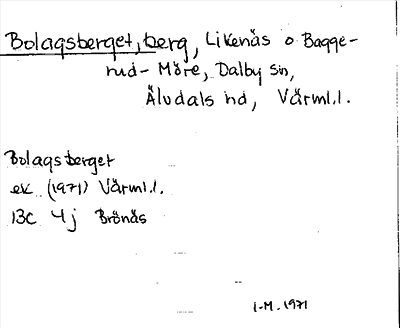 Bolagsberget, berg, Likenäs o Bagge-
rud- Möre, Dalby sn,
Äludals hd, Värml.l.
Bolagsberget
ek (1971) Värml.l.
13C 4j Brönäs
I-M. 1971